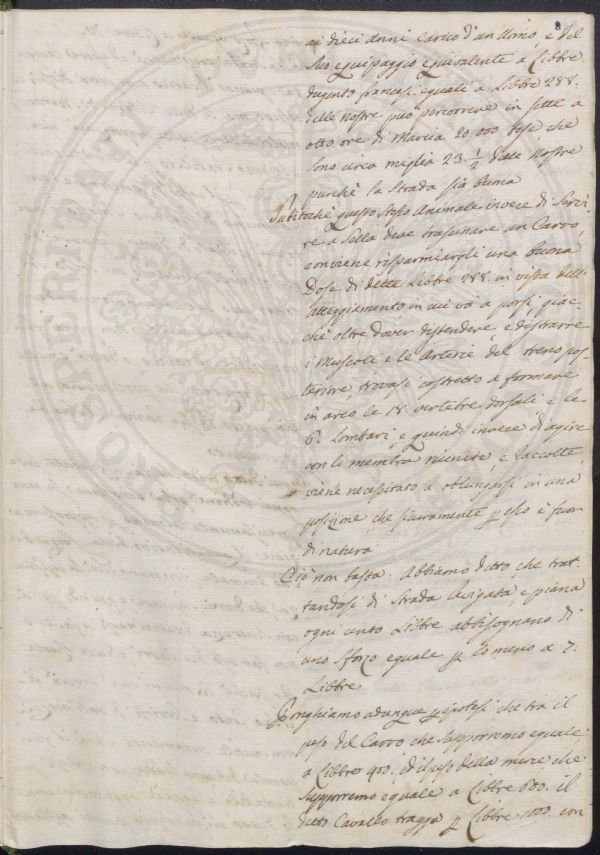 ai dieci anni carico d'un Uomo, e del
suo equipaggio equivalente a Libbre
dugento francesi eguali a Libbre 288.
delle nostre può percorrere in sette a
otto ore di Marcia 20 000 tese che
sono circa miglia 23 1/2 delle nostre
purchè la Strada sia buona
Subitochè questo stesso Animale invece di Servi
re a Sella deve trascinare un Carro,
conviene risparmiargli una buona
Dose di dette Libbre 288. in vista dell'
atteggiamento in cui va a porsi, giac
chè oltre dover distendere, e distrarre
i Muscoli e le Arterie del treno pos-
teriore, trovasi costretto a formare
in arco le 18. vertebre dorsali e le
6. lombari, e quindi invece di agire
con le membra riunite, e raccolte
viene necessitato a oblungarsi in una
posizione che sicuramente p esso è fuor
di natura
Ciò non basta. Abbiamo detto che trat-
tandosi di Strada levigata, e piana
ogni cento Libbre abbisognano di
uno sforzo eguale p lo meno a 7.
Libbre
Ponghiamo adunque p ipotesi che tra il
peso del Carro che supporremo eguale
a Libbre 400. ed il peso della merce che
supporremo eguale a Libbre 600. il
detto Cavallo tragga p Libbre 1000. con